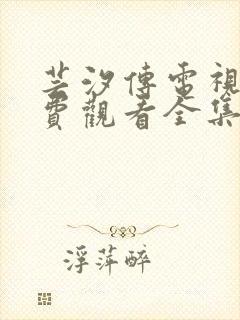 芸汐傳電視
費觀看全集
浮萍醉